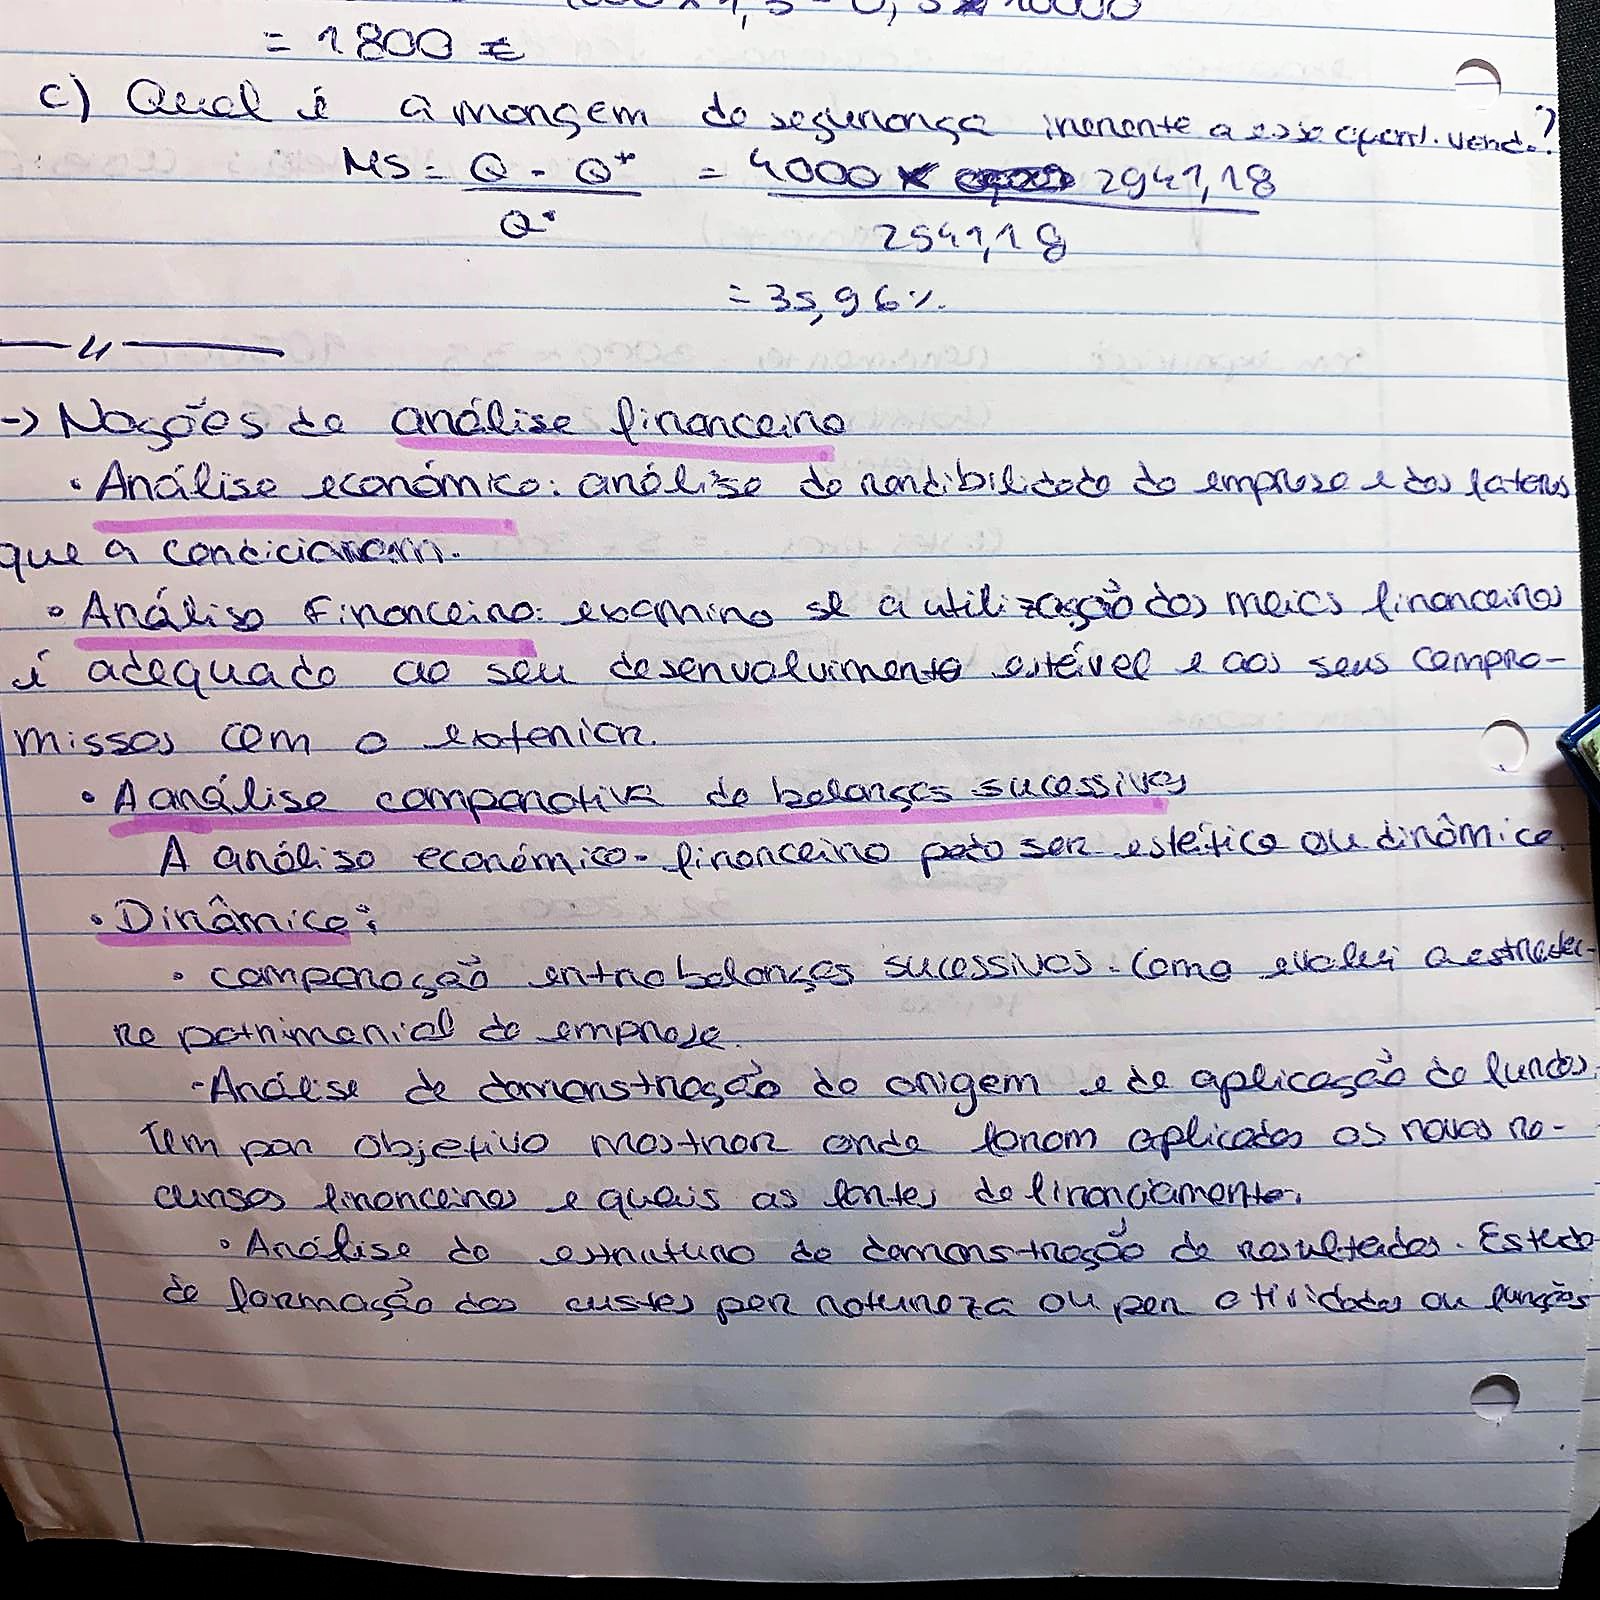 = 1800 €
c) Qual é a margem de segurança inerente a essa quant. vend.?
MS = Q - Q* / Q* = 4000 2941,18 / 2941,18
= 35,96%
-> Noções de análise financeira
• Análise económica: análise da rendibilidade da empresa e dos fatores
que a condicionam.
• Análise Financeira: examina se a utilização dos meios financeiros
é adequada ao seu desenvolvimento estável e aos seus compro-
missos com o exterior.
• A análise comparativa de balanços sucessivos
A análise económico-financeira pode ser estática ou dinâmica.
• Dinâmica:
• comparação entre balanços sucessivos. Como evolui a estrutu-
ra patrimonial da empresa.
- Análise de demonstração de origem e de aplicação de fundos.
Tem por objetivo mostrar onde foram aplicados os novos re-
cursos financeiros e quais as fontes de financiamento.
• Análise da estrutura da demonstração de resultados. Estudo
de formação dos custos por natureza ou por atividades ou funções